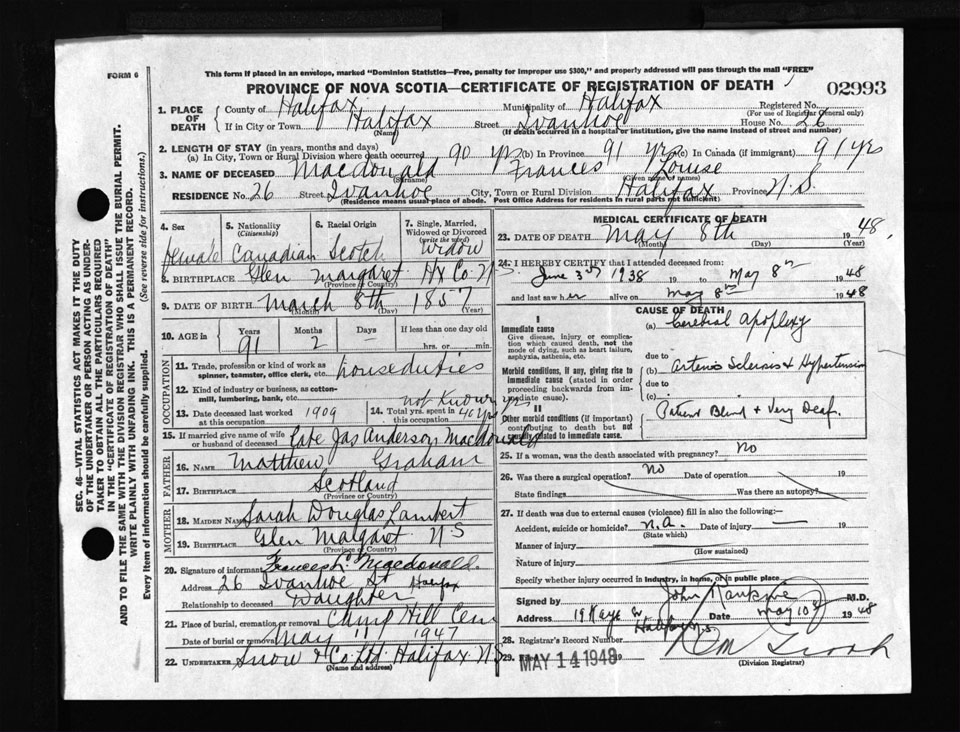 FORM 6
This form if placed in an envelope, marked "Dominion Statistics—Free, penalty for improper use $300," and properly addressed will pass through the mail "FREE"
PROVINCE OF NOVA SCOTIA—CERTIFICATE OF REGISTRATION OF DEATH 02993
1. PLACE OF DEATH County of Halifax Municipality of Halifax Registered No.
(For use of Registrar General only)
If in City or Town Halifax Street Ivanhoe House No. 26
(Name) (If death occurred in a hospital or institution, give the name instead of street and number)
2. LENGTH OF STAY (in years, months and days)
(a) In City, Town or Rural Division where death occurred 90 yrs (b) In Province 91 yrs (c) In Canada (if immigrant) 91 yrs
3. NAME OF DECEASED Macdonald Frances Louise
(Surname) (Given name or names)
RESIDENCE No. 26 Street Ivanhoe City, Town or Rural Division Halifax Province N.S.
(Residence means usual place of abode. Post Office Address for residents in rural parts not sufficient)
SEC. 46—VITAL STATISTICS ACT MAKES IT THE DUTY
OF THE UNDERTAKER OR PERSON ACTING AS UNDER-
TAKER TO OBTAIN ALL THE PARTICULARS REQUIRED
IN THE "CERTIFICATE OF REGISTRATION OF DEATH"
AND TO FILE THE SAME WITH THE DIVISION REGISTRAR WHO SHALL ISSUE THE BURIAL PERMIT.
WRITE PLAINLY WITH UNFADING INK. THIS IS A PERMANENT RECORD.
Every item of information should be carefully supplied. (See reverse side for instructions.)
4. Sex 5. Nationality (Citizenship) 6. Racial Origin 7. Single, Married, Widowed or Divorced (write the word)
Female Canadian Scotch Widow
8. BIRTHPLACE Glen Margaret Hx Co. N.S.
(Province or Country)
9. DATE OF BIRTH March 8th 1857
(Month) (Day) (Year)
10. AGE IN Years Months Days If less than one day old
91 2 — hrs. or min.
OCCUPATION
11. Trade, profession or kind of work as spinner, teamster, office clerk, etc. housedutiés
12. Kind of industry or business, as cotton-mill, lumbering, bank, etc. not known
13. Date deceased last worked at this occupation 1909 14. Total yrs. spent in this occupation 40 yrs
15. If married give name of wife or husband of deceased Late Jas Anderson Macdonald
FATHER
16. NAME Matthew Graham
17. BIRTHPLACE Scotland
(Province or Country)
MOTHER
18. MAIDEN NAME Sarah Douglas Lambert
19. BIRTHPLACE Glen Malgaret N S
(Province or Country)
20. Signature of informant Macdonald.
Address 26 Ivanhoe St Halifax
Relationship to deceased Daughter
21. Place of burial, cremation or removal Camp Hill Cem
Date of burial or removal May 11 1947
22. UNDERTAKER Snow & Co. Ltd. Halifax N.S.
(Name and address)
MEDICAL CERTIFICATE OF DEATH
23. DATE OF DEATH May 8th 1948,
(Month) (Day) (Year)
24. I HEREBY CERTIFY that I attended deceased from:
June 3rd 1938 19 to May 8th 1948
and last saw her alive on May 8th 1948
CAUSE OF DEATH
I
Immediate cause
Give disease, injury or complication which caused death, not the mode of dying, such as heart failure, asphyxia, asthenia, etc.
(a) Cerebral Apoplexy
due to
Morbid conditions, if any, giving rise to immediate cause (stated in order proceeding backwards from immediate cause)
(b) Arterio Sclerosis & Hypertension
due to
(c)
II
Other morbid conditions (if important) contributing to death but not causally related to immediate cause
Patient Blind & Very Deaf.
25. If a woman, was the death associated with pregnancy? No
26. Was there a surgical operation? No Date of operation 19
State findings Was there an autopsy?
27. If death was due to external causes (violence) fill in also the following:—
Accident, suicide or homicide? n.a. Date of injury — 19
(State which)
Manner of injury
(How sustained)
Nature of injury
Specify whether injury occurred in industry, in home, or in public place
Signed by John Rankine M.D.
Address 19 Kaye St Date May 10 1948
Halifax N.S.
28. Registrar's Record Number
29. MAY 14 1948 19
(Division Registrar)